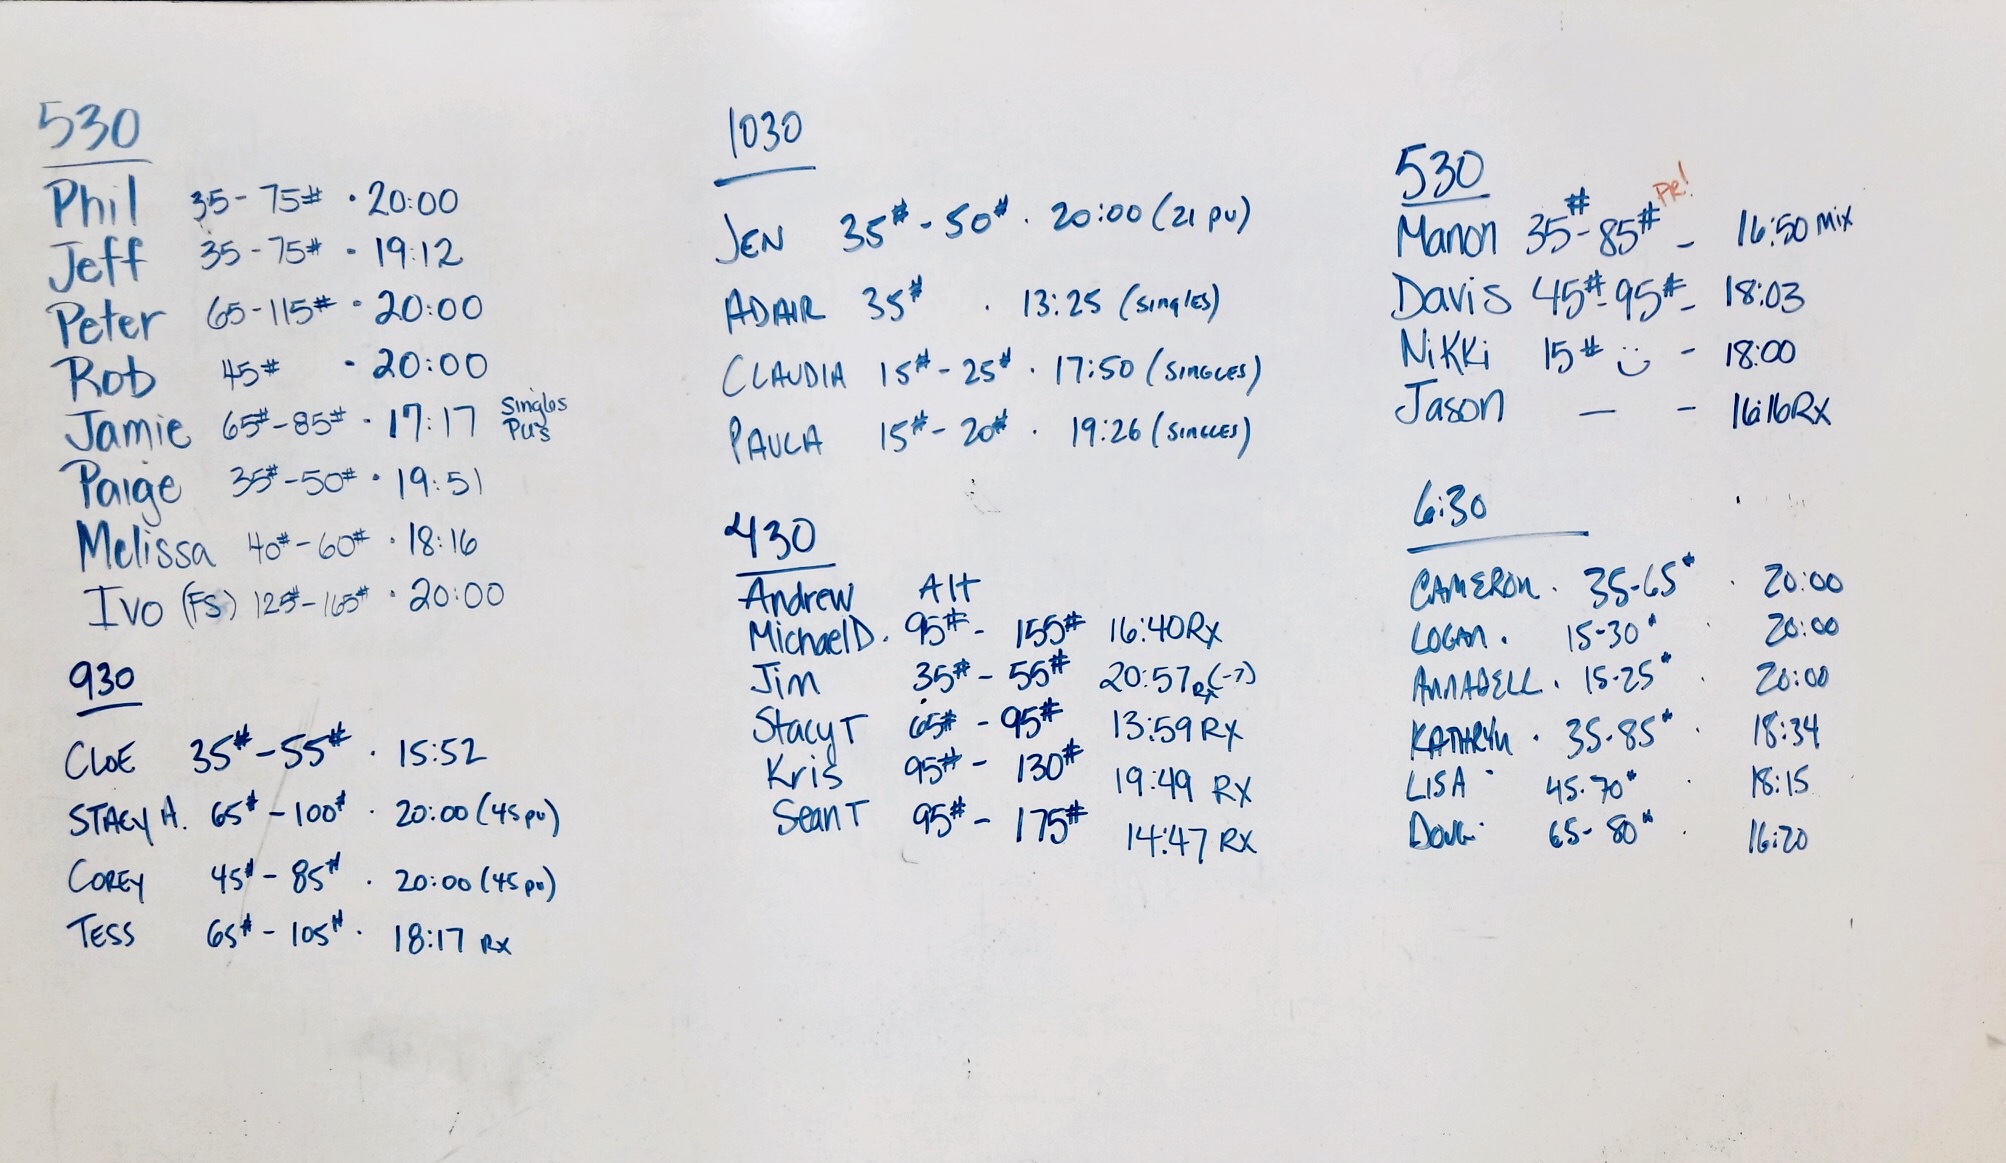 530
Phil 35-75# · 20:00
Jeff 35-75# - 19:12
Peter 65-115# · 20:00
Rob 45# · 20:00
Jamie 65#-85# · 17:17 Singles Pu's
Paige 35#-50# · 19:51
Melissa 40#-60# · 18:16
Ivo (FS) 125#-165# · 20:00
930
CLOE 35#-55# · 15:52
STACY A. 65#-100# · 20:00 (45 pu)
COREY 45#-85# · 20:00 (45 pu)
TESS 65#-105# · 18:17 RX
1030
JEN 35#-50# · 20:00 (21 PU)
ADAIR 35# · 13:25 (singles)
CLAUDIA 15#-25# · 17:50 (SINGLES)
PAULA 15#-20# · 19:26 (SINGLES)
430
Andrew Alt
Michael D. 95# - 155# 16:40 Rx
Jim 35# - 55# 20:57 Rx (-7)
Stacy T 65# - 95# 13:59 RX
Kris 95# - 130# 19:49 RX
Sean T 95# - 175# 14:47 RX
530
Manon 35#-85# PR! - 16:50 Mix
Davis 45#-95# - 18:03
Nikki 15# :) - 18:00
Jason — - 16:16 Rx
6:30
CAMERON · 35-65# · 20:00
LOGAN · 15-30# · 20:00
ANNABELL · 15-25# · 20:00
KATHRYN · 35-85# · 18:34
LISA · 45-70# · 18:15
DOUG · 65-80# · 16:20